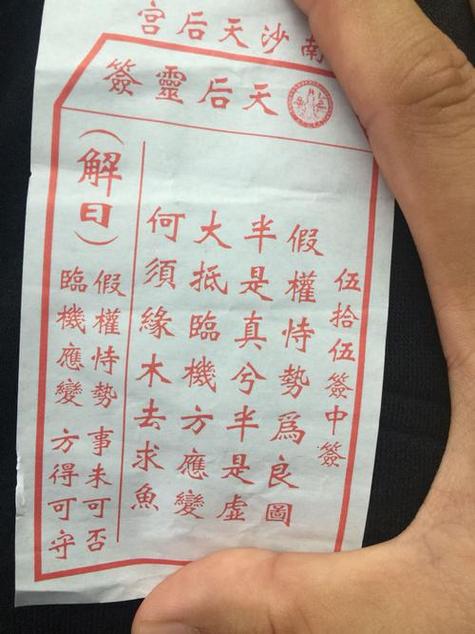 南沙天后宮
天后靈簽
伍拾伍簽中簽
假權恃勢爲良圖
半是真兮半是虛
大抵臨機方應變
何須緣木去求魚
（解曰）
假權恃勢 事未可否
臨機應變 方得可守